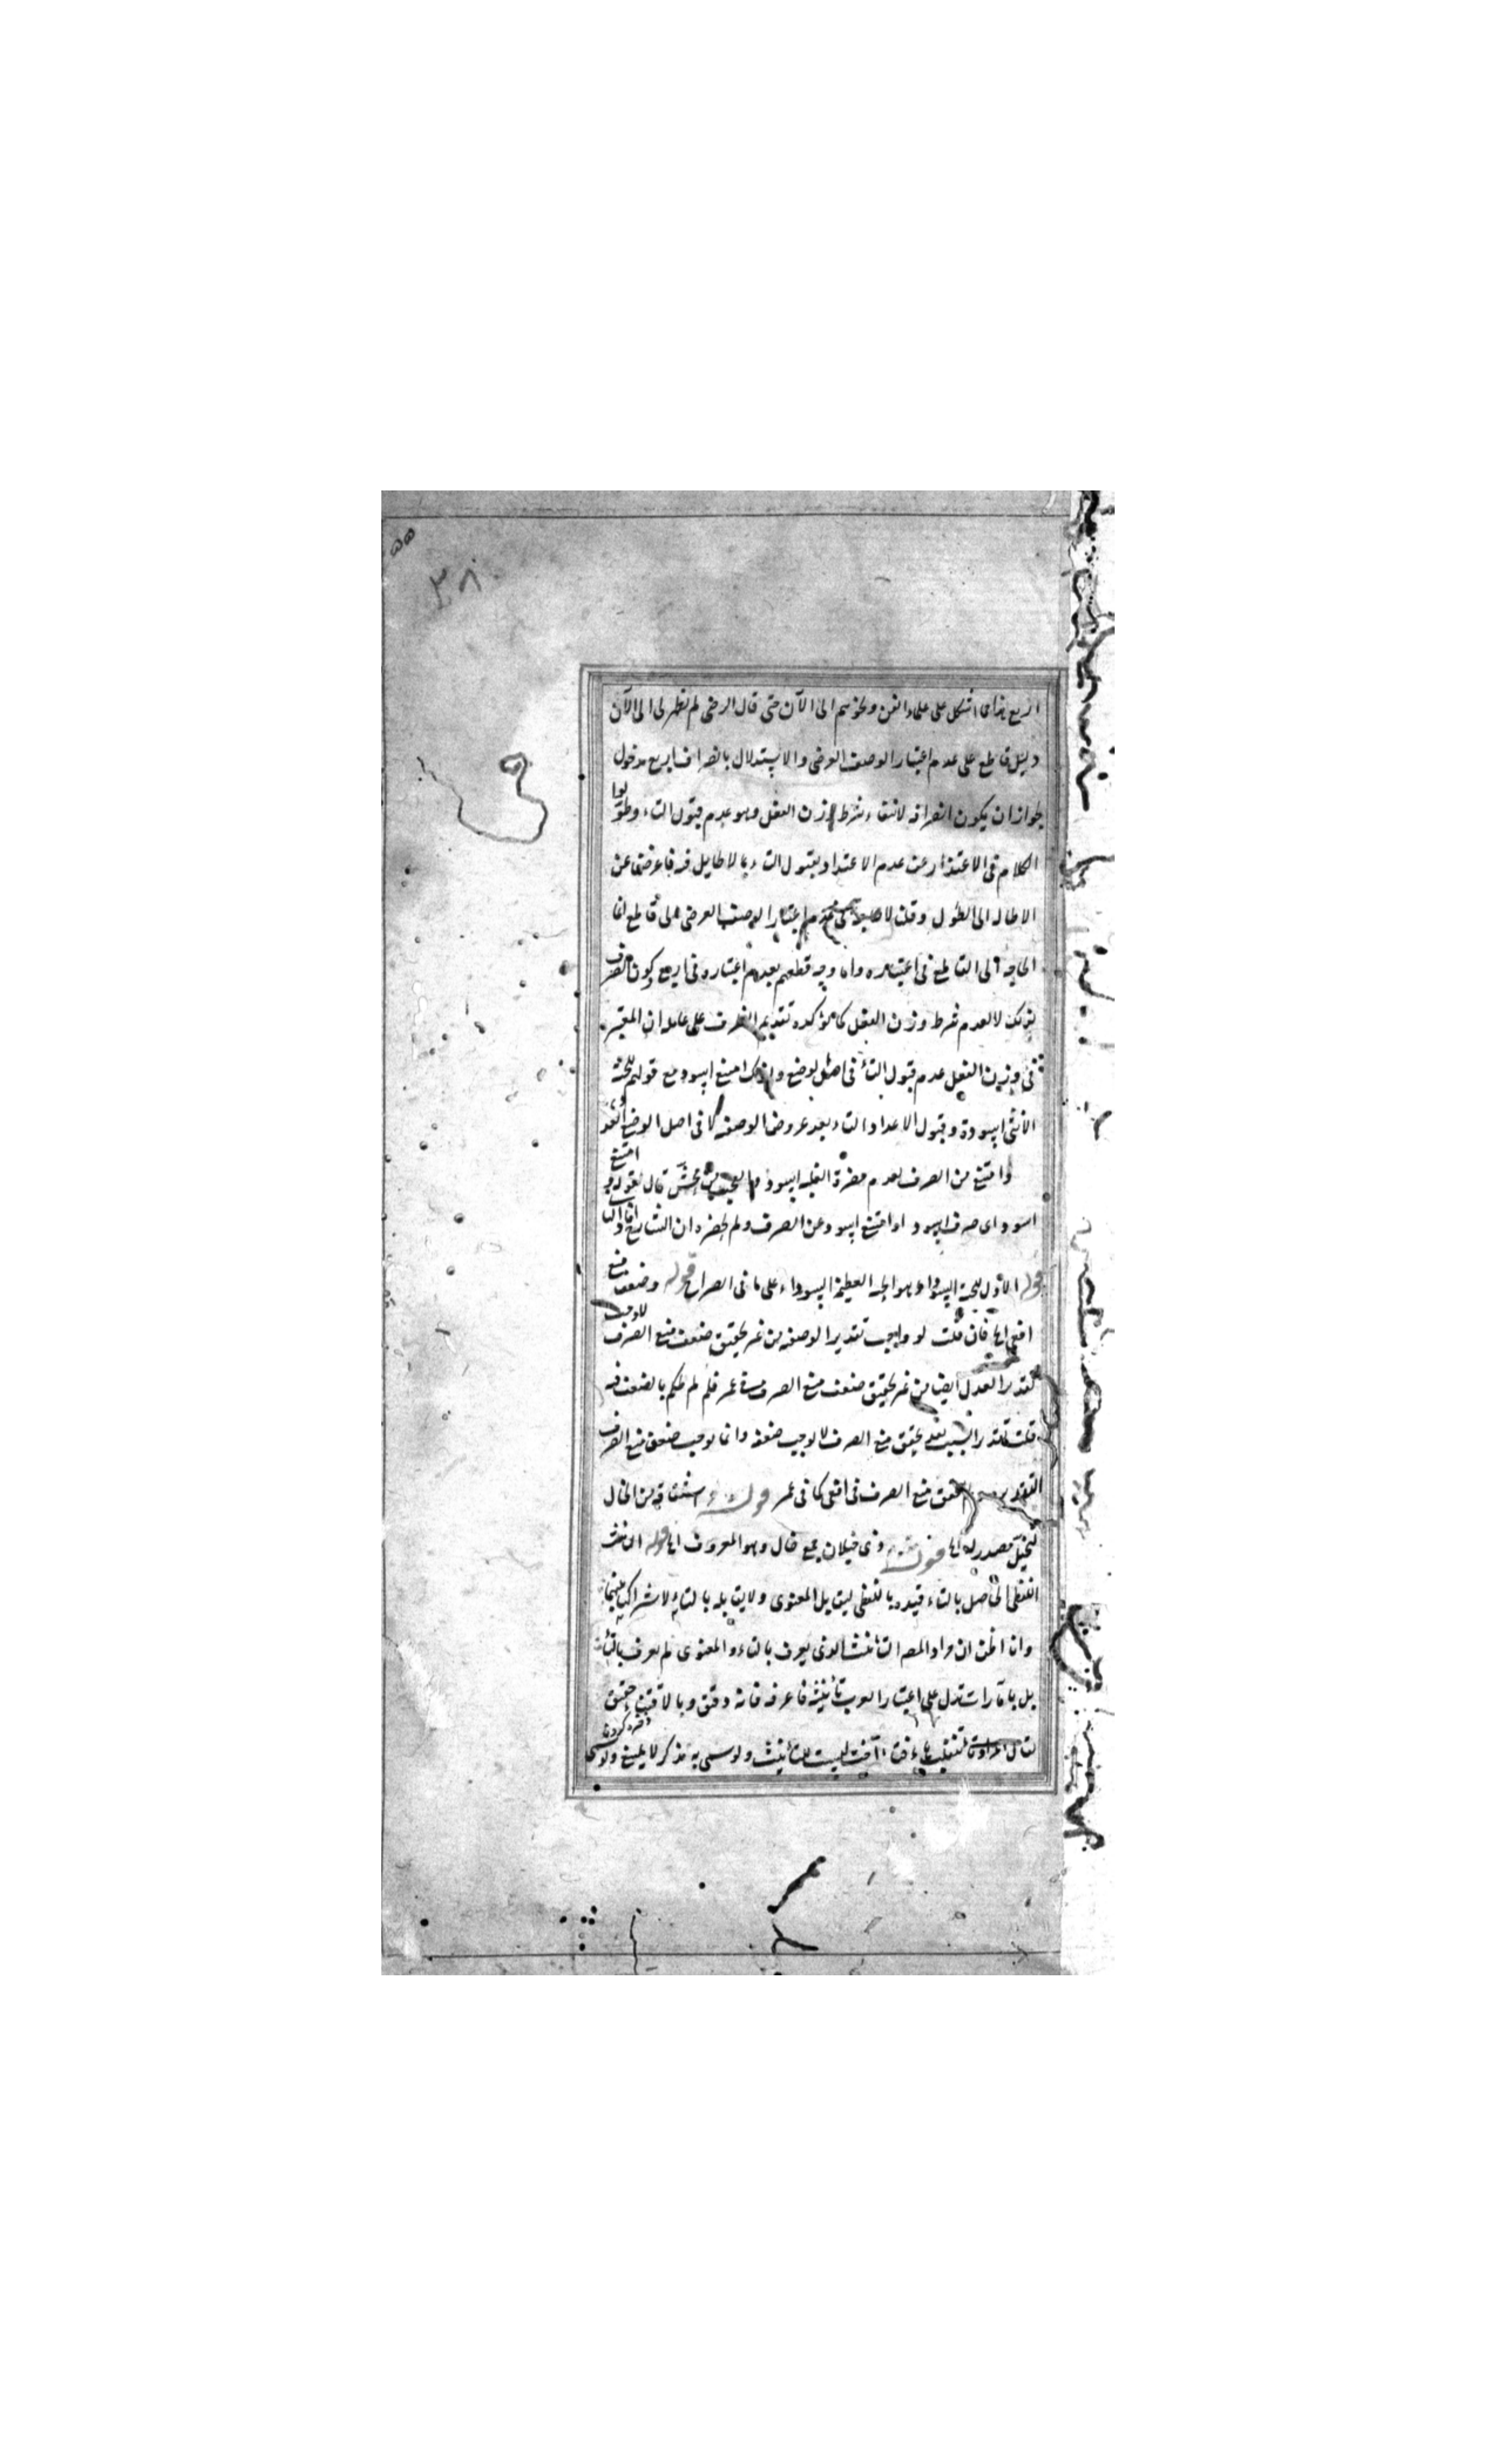 ٣٨
اربع هذا مما اشكل على علماء الفن وتحوسهم الى الآن حتى قال الرضى لم يظهر لى الى الآن
دليل قاطع على عدم اعتبار الوصف العرضى والاستدلال بانصراف اربع مدخول
لجواز ان يكون انصرافه لانتفاء شرط وزن الفعل وهو عدم قبول التاء وطولوا
الكلام فى الاعتذار عن عدم الاعتداد بقبول التاء بما لا طايل فيه فاعرضنا عن
الاطالة الى الطول وقلت لا حاجة فى عدم اعتبار الوصف العرضى الى قاطع انما
الحاجة الى القاطع فى اعتباره واما وجه قطعهم بعدم اعتباره فى اربع كون الصرف
لذلك لا لعدم شرط وزن الفعل كما يؤكده تقديم الظرف على عامله ان المعتبر
فى وزن الفعل عدم قبول التاء فى اصل الوضع ولذلك امتنع اسود مع قولهم للحية
الانثى اسودة وقبول الاعداد التاء بعد عروض الوصف لا فى اصل الوضع
وامتنع من الصرف لعدم مضرة الغلبة اسود قال لقوله امتنع
اسود اى صرف اسود او امتنع اسود عن الصرف ولم يحضره ان الشايع
قوله الاول للحية السوداء وهو الحية العظيمة السوداء على ما فى الصراح قوله وضعف منع
افعى اها فان قلت لو اوجب تقدير الوصف من غير تحقيق ضعف منع الصرف لاوجب
تقدير العدل ايضا من غير تحقيق ضعف منع الصرف فى عمر فلم لم يحكم بالضعف فيه
قلت تقدير السبب بعد تحقق منع الصرف لا يوجب ضعفه وانما يوجب ضعف منع الصرف
التقدير تحقق منع الصرف فى افعى كما فى عمر قوله اشتقاقه من الخال
لتخيل مصدر له اها قوله ذى خيلان جمع خال وهو المعروف اها قوله التانيث
اللفظى الحاصل بالتاء قيده باللفظى ليقابل المعنوى ولا يقابله بالتاء لاشتراك بينهما
وانا اظن ان مراد المصـ التانيث الذى يعرف بالتاء والمعنوى لم يعرف بالتاء
بل بامارات تدل على اعتبار العرب تأنيثه فاعرفه فانه دقيق وبالالتفات حقيق
لا يقال اخت ليست للتأنيث ولو سمى به مذكر لا يمنع ولو سمى